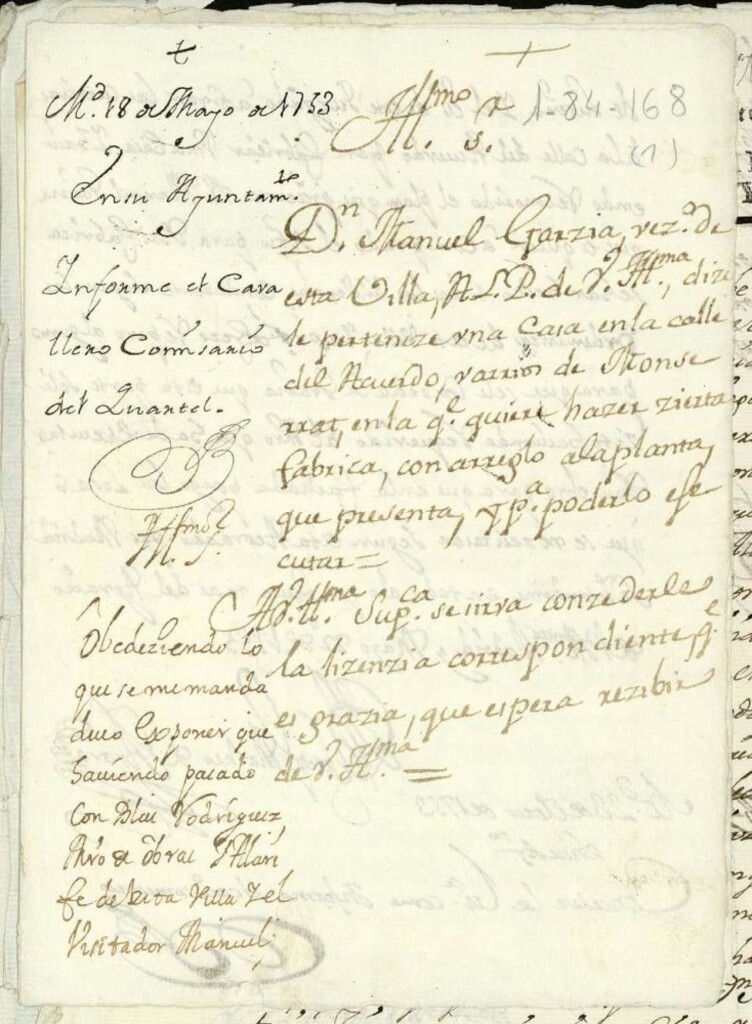 Md. 18 de Mayo de 1753
En su Ayuntamto.
Informe el Cava
llero Comisario
del Quartel.
Illmo. Sr.
1-84-168
(1)
Dn. Manuel Garzia, vezo. de
esta Villa, A L. P. de V. Illma., dize
le perteneze vna Casa en la calle
del Acuerdo, varrios de Monse
rrat, en la qe. quiere hazer zierta
fabrica, con arreglo a la planta,
que presenta, y pa. poderlo ese
cutar=
A V. Illma. Supca. se sirva conzederle
la lizenzia correspondiente, qe.
es grazia, que espera rezibir
de V. Illma. =
Illmo. Sr.
Obedeziendo lo
que se me manda
devo Exponer que
haviendo pasado
Con Blas Rodriguez,
Mro de obras Y Alari
fe de Esta Villa Y el
Visitador Manuel